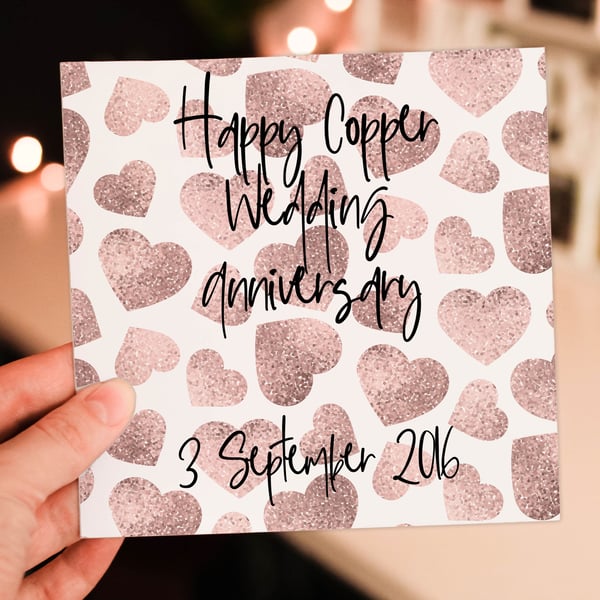 Happy Copper
Wedding
anniversary
3 September 2016